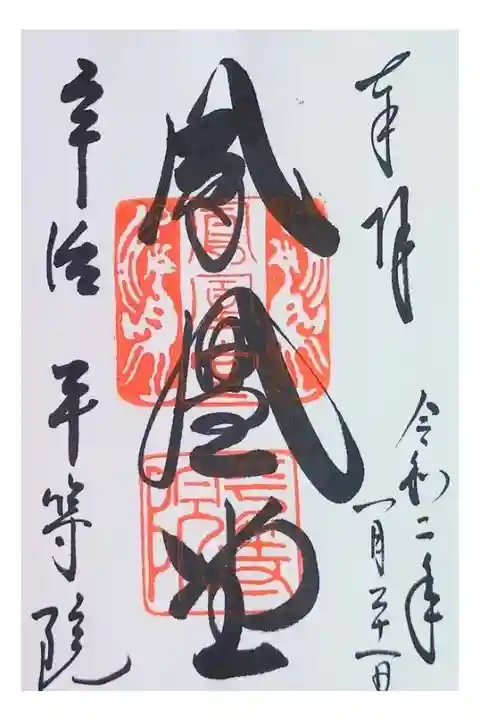 奉拝
令和二年
一月二十一日
鳳凰堂
宇治 平等院
鳳凰堂